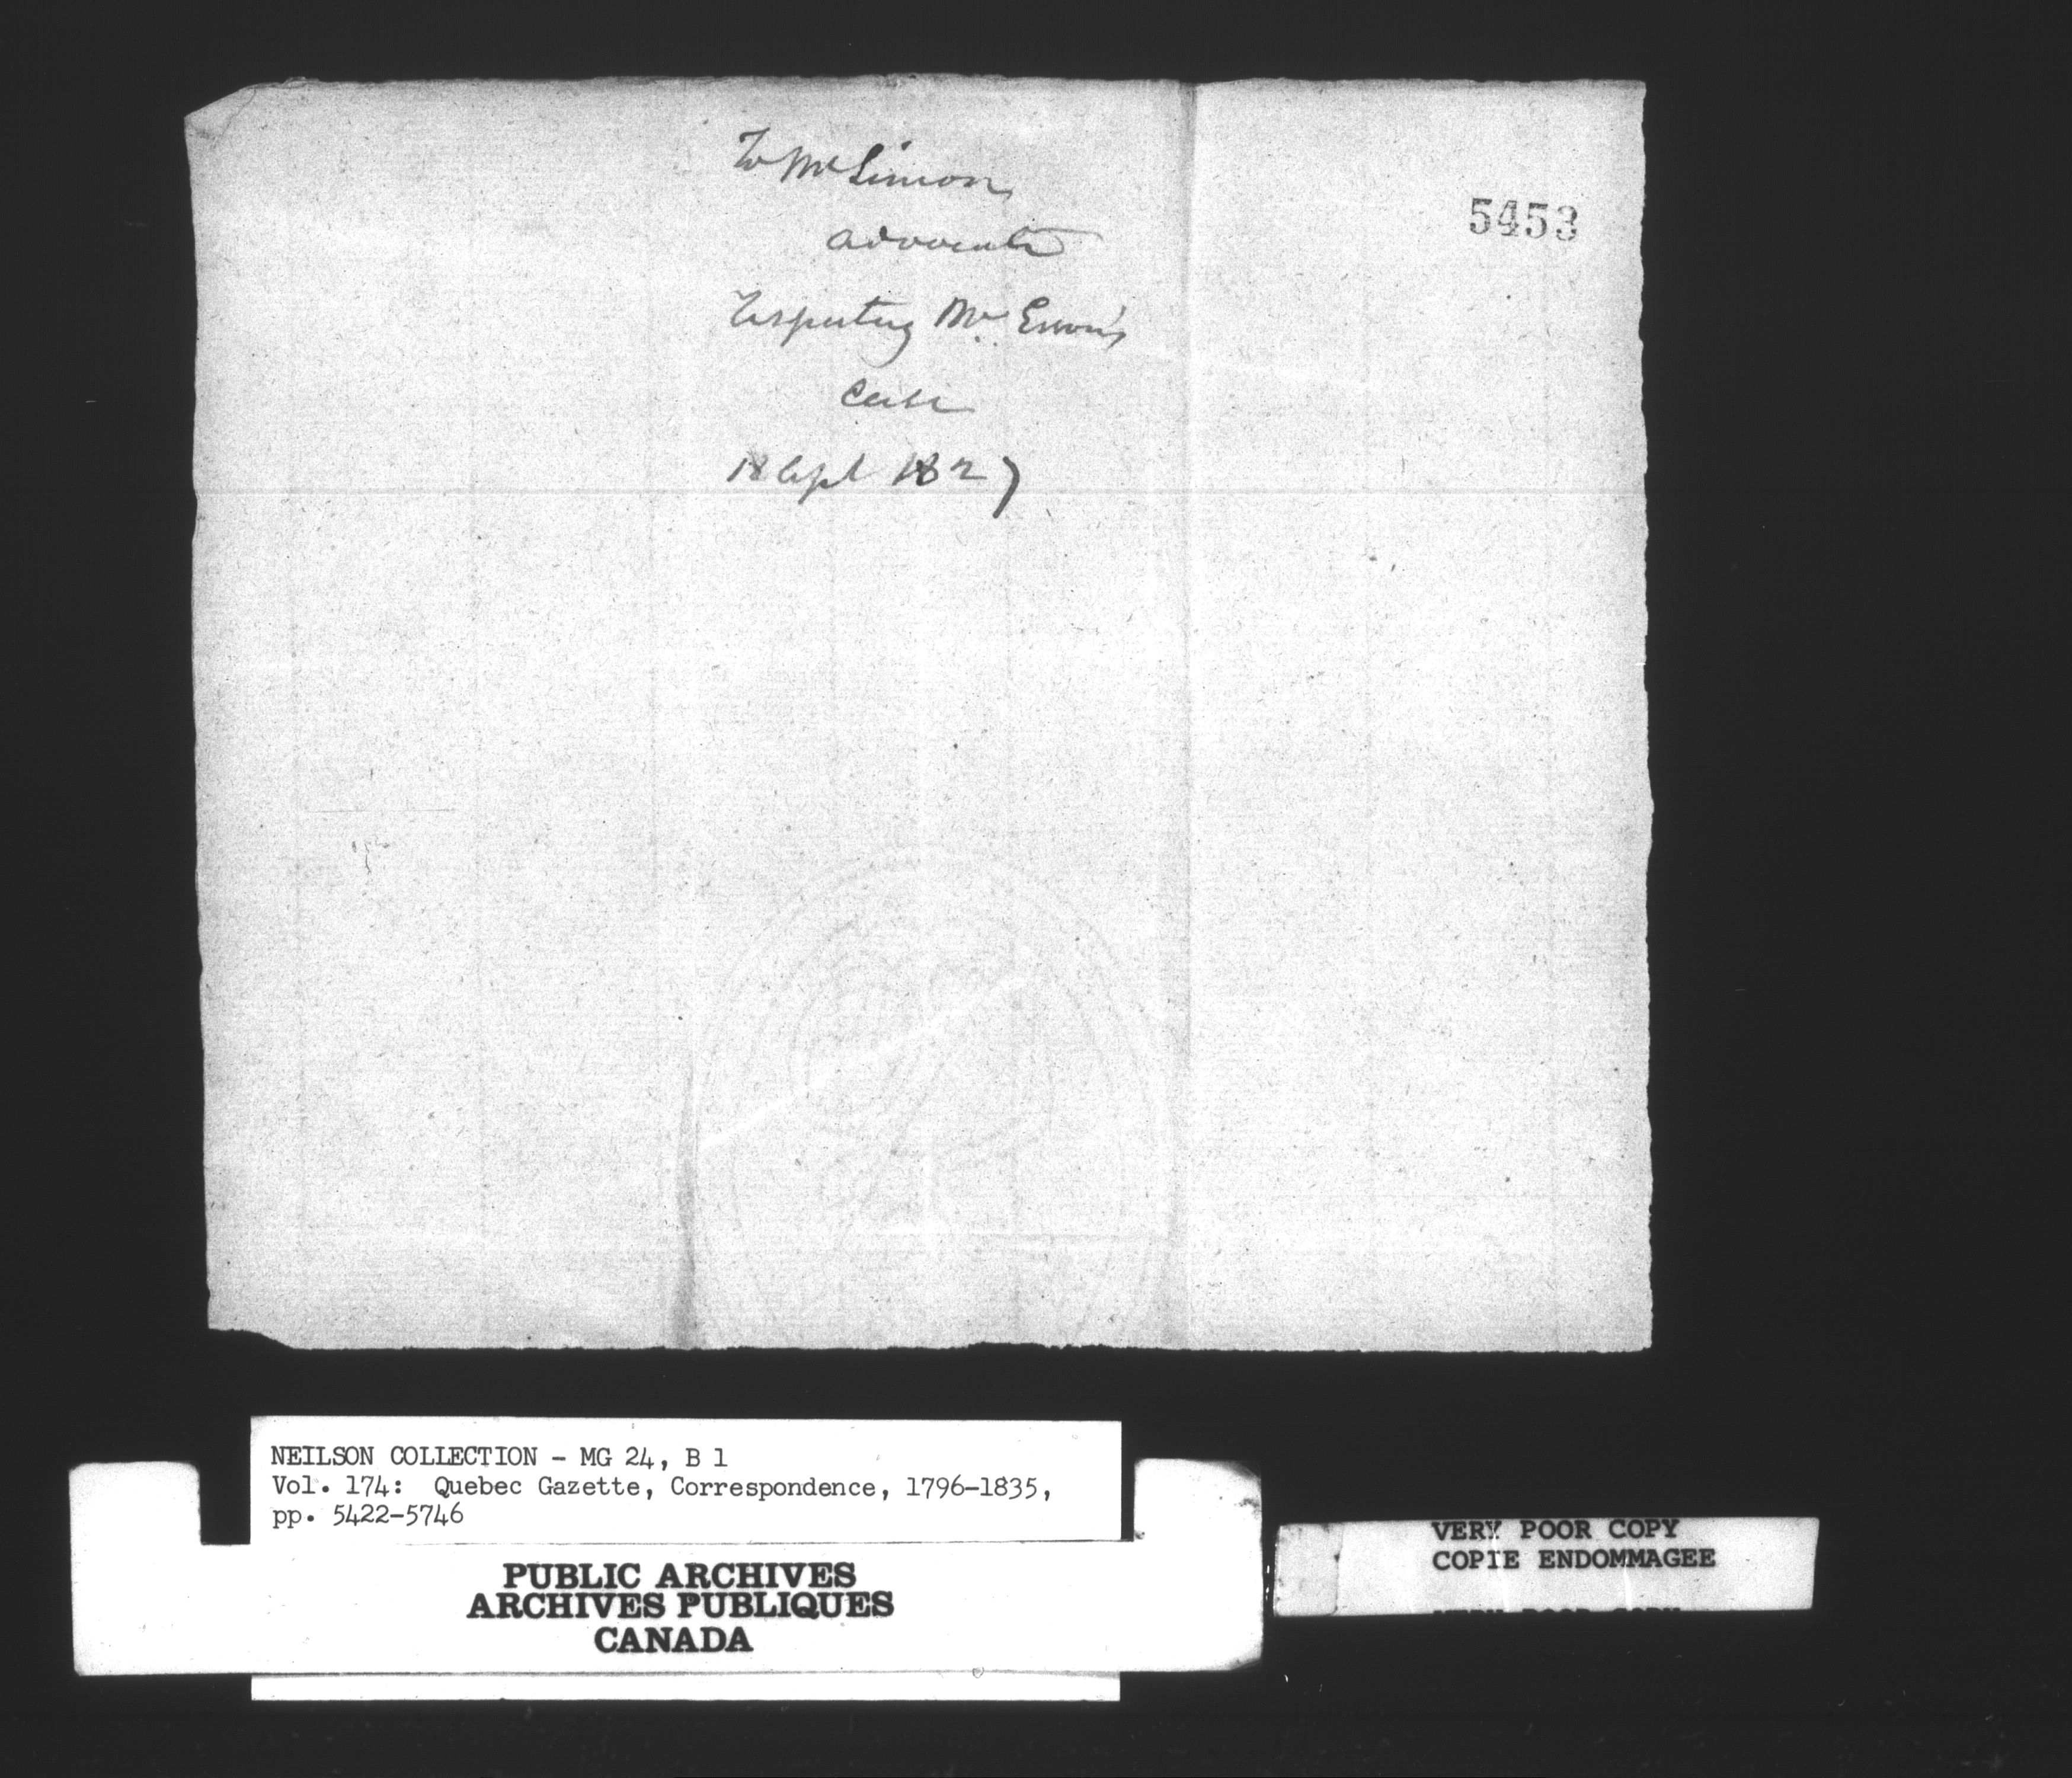 To Mr Simon
advocate
respecting Mr
Case
18 Apl 1827
5453
NEILSON COLLECTION - MG 24, B 1
Vol. 174: Quebec Gazette, Correspondence, 1796-1835,
pp. 5422-5746
PUBLIC ARCHIVES
ARCHIVES PUBLIQUES
CANADA
VERY POOR COPY
COPIE ENDOMMAGEE
VERY POOR COPY